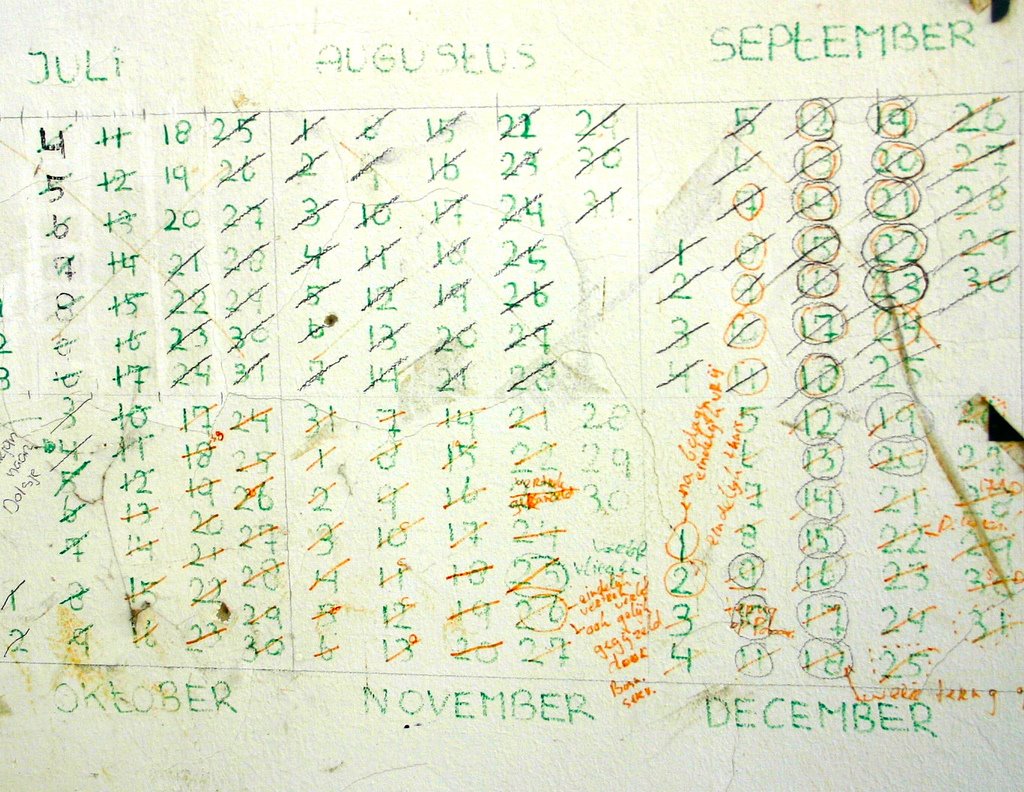 JULI AUGUSTUS SEPTEMBER
4 11 18 25 1 8 15 22 29 5 12 19 26
5 12 19 26 2 9 16 23 30 6 13 20 27
6 13 20 27 3 10 17 24 31 7 14 21 28
7 14 21 28 4 11 18 25 1 8 15 22 29
1 8 15 22 29 5 12 19 26 2 9 16 23 30
2 9 16 23 30 6 13 20 27 3 10 17 24
3 10 17 24 31 7 14 21 28 4 11 18 25
3 10 17 24 31 7 14 21 28 5 12 19 26
4 11 18 25 1 8 15 22 29 6 13 20 27
5 12 19 26 2 9 16 30 7 14 21 28
6 13 20 27 3 10 17 24 1 8 15 22 29
7 14 21 28 4 11 18 25 2 9 16 23 30
1 8 15 22 29 5 12 19 26 3 17 24 31
2 9 16 23 30 6 13 20 27 4 11 18 25
naar
voor
eindelijk
vertrek
ook
gegijzeld
door
na
eindelijk
weer terug
OKTOBER NOVEMBER DECEMBER